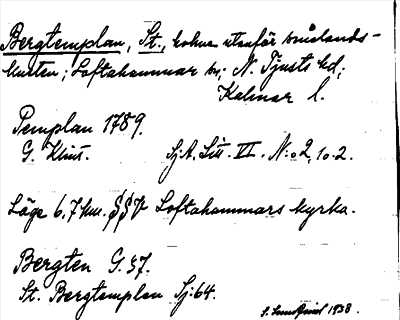 Bergtemplan, St., holme utanför smålands-
kusten; Loftahammar sn; N. Tjusts hd;
Kalmar l.
Templan 1789.
G. Klint. Sj.A. Litt. VI. N:o 2, 10.2.
Läge 6,7 km. SSV Loftahammars kyrka.
Bergten G. 37.
St. Bergtemplen Sj: 64.
1938.